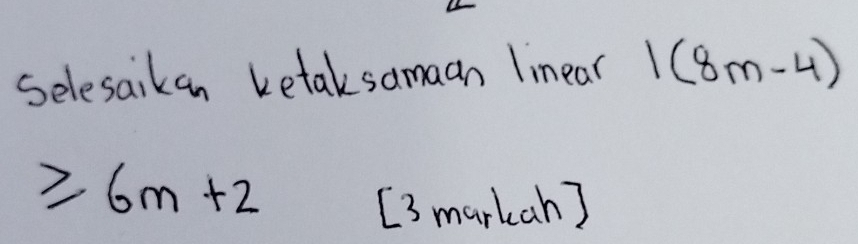 Selesaikan ketaksamaan linear 1(8m-4)
≥ 6m +2 [3 markah]